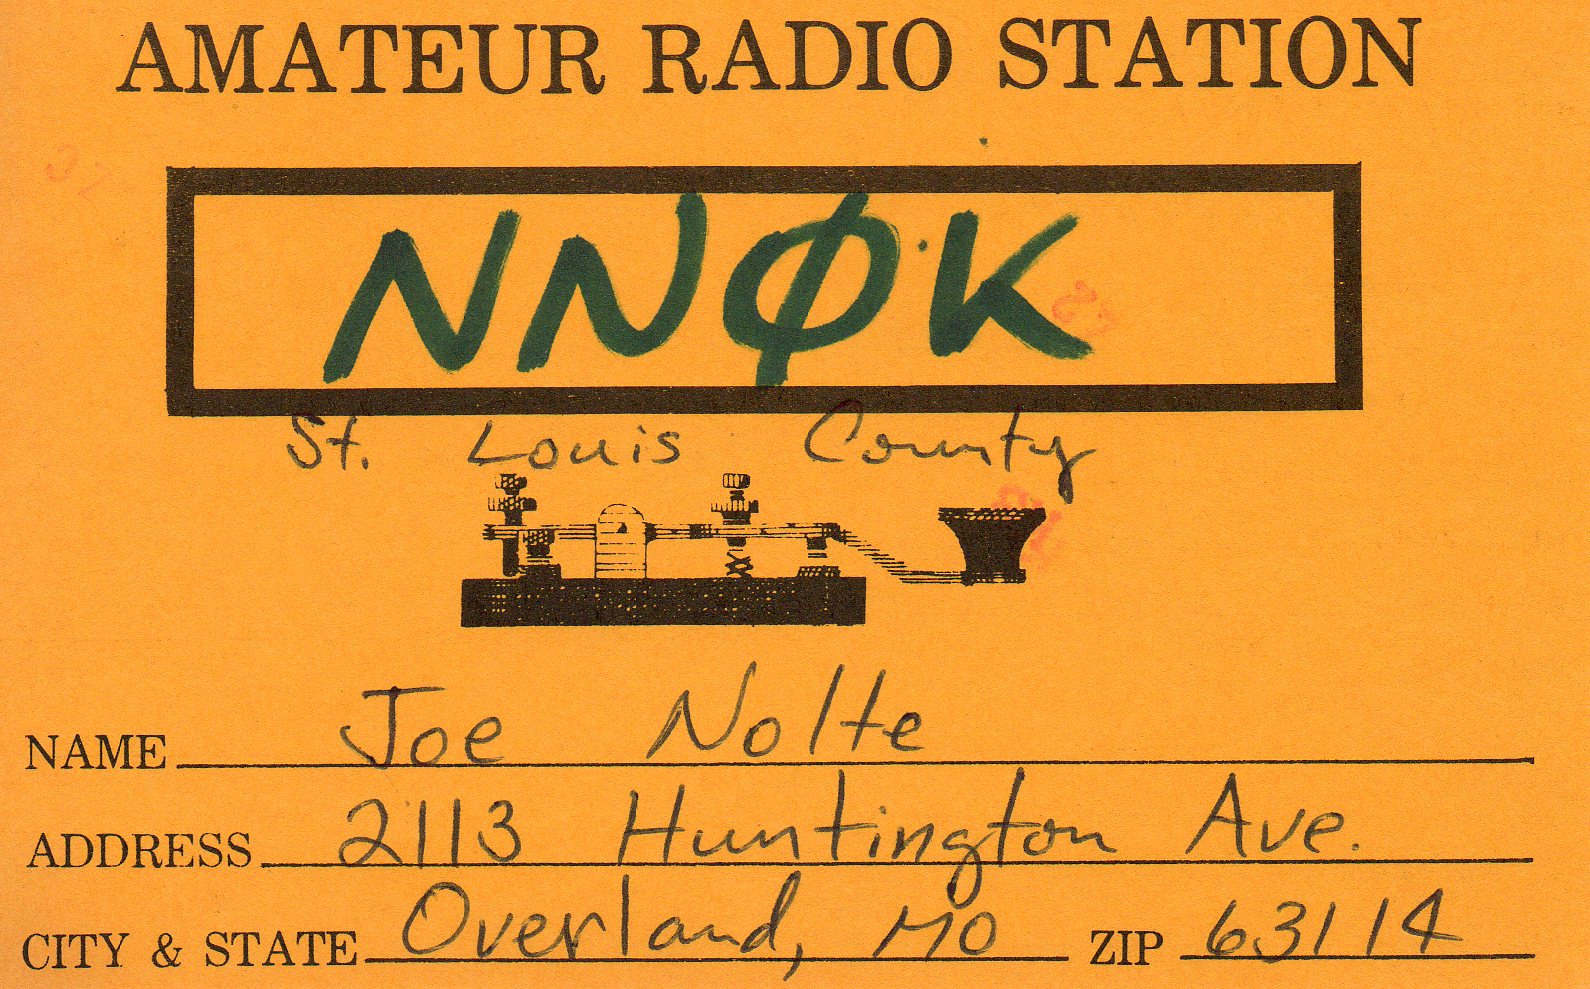 AMATEUR RADIO STATION
NNØK
St. Louis County
NAME Joe Nolte
ADDRESS 2113 Huntington Ave.
CITY & STATE Overland, MO ZIP 63114